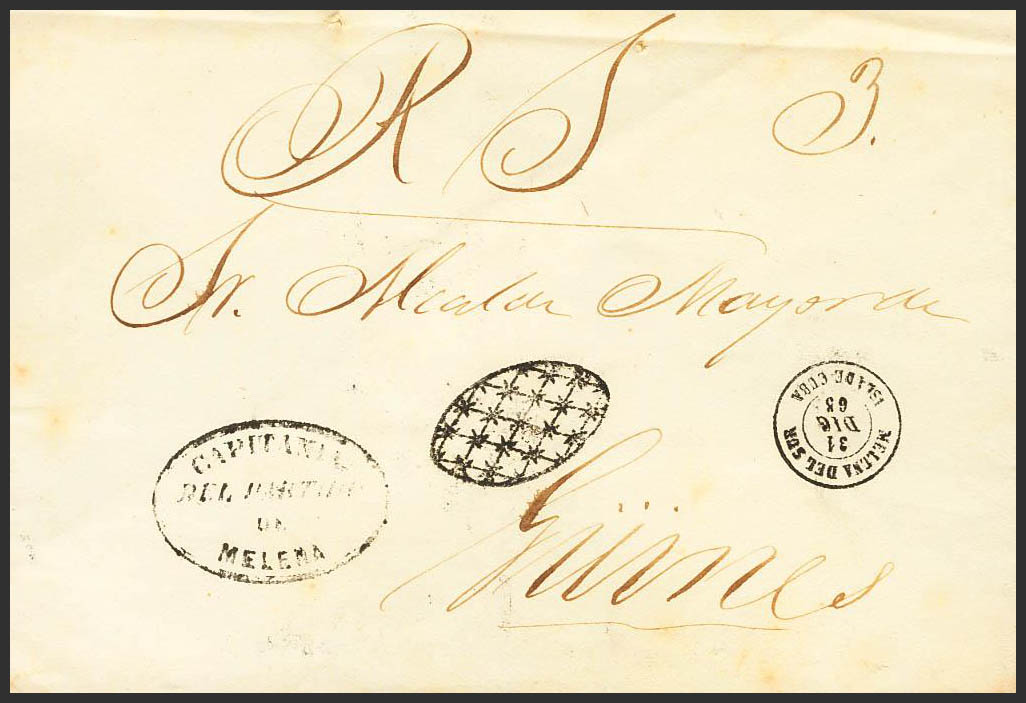 R S 3.
Sr. Alcalde Mayor de
Güines
CAPITANIA
DEL PARTIDO
DE
MELENA
MELENA DEL SUR
31
DIC
65
ISLA DE CUBA